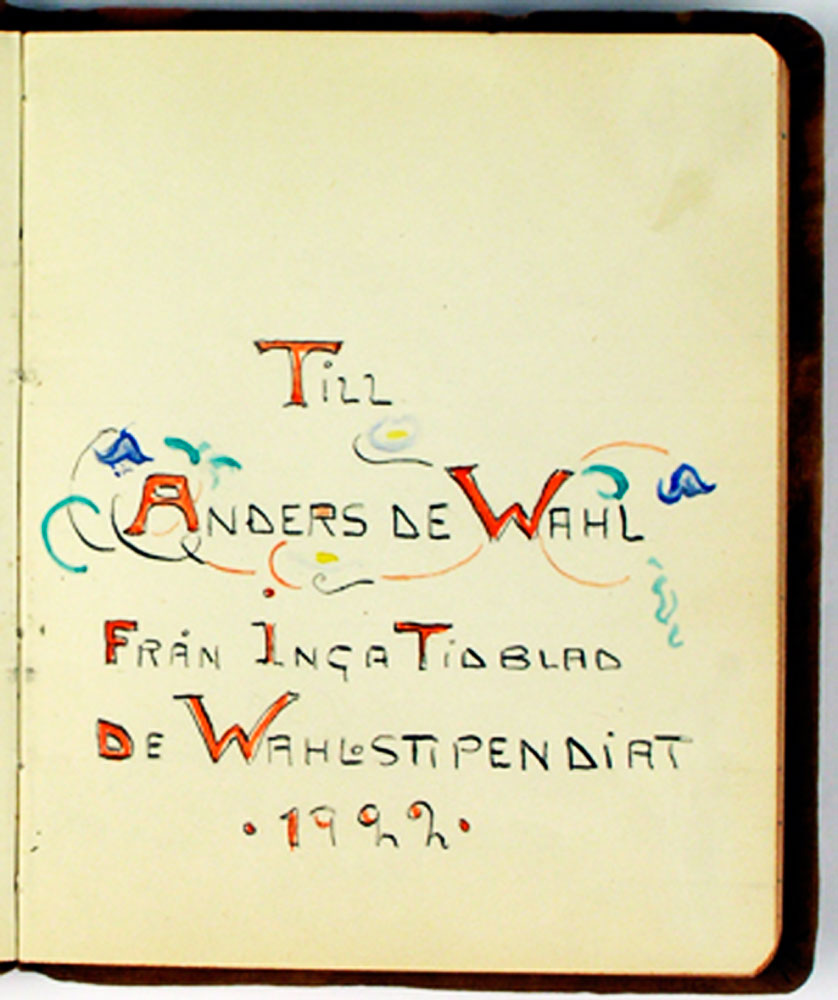 Till
Anders de Wahl
Från Inga Tidblad
De Wahlstipendiat
· 1922 ·